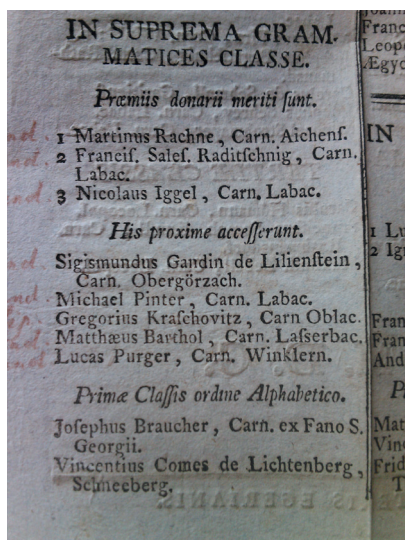 IN SUPREMA GRAM-
MATICES CLASSE.
Præmiis donarii meriti ſunt.
1 Martinus Rachne, Carn. Aichenſ.
2 Franciſ. Saleſ. Raditſchnig, Carn.
Labac.
3 Nicolaus Iggel, Carn. Labac.
His proxime acceſſerunt.
Sigismundus Gandin de Lilienſtein,
Carn. Obergörzach.
Michael Pinter, Carn. Labac.
Gregorius Kraſchovitz, Carn Oblac.
Matthæus Barthol, Carn. Laſserbac.
Lucas Purger, Carn. Winklern.
Primæ Claſſis ordine Alphabetico.
Joſephus Braucher, Carn. ex Fano S.
Georgii.
Vincentius Comes de Lichtenberg,
Schneeberg.
Franc
Leop
Ægyc
IN
1 Lu
2 Ig
Fran
Fran
And
P
Mat
Vinc
Frid
T